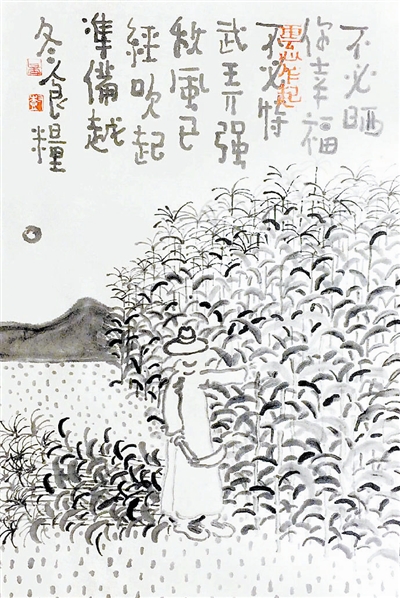 不必晒
你幸福
不必恃
武 强
秋風已
經吹起
準備越
冬食糧